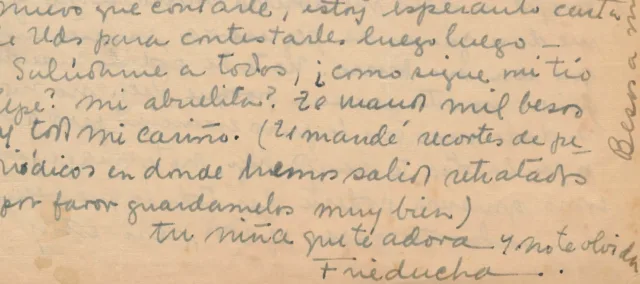 nuevo que contarte, estoy esperando carta
de Uds para contestarles luego luego —
Salúdame a todos, ¿como sigue mi tío
Pepe? mi abuelita? Te mando mil besos
y todo mi cariño. (Te mandé recortes de pe-
riódicos en donde hemos salido retratados
por favor guardamelos muy bien)
tu niña que te adora y no te olvida
Frieducha.
Besos a